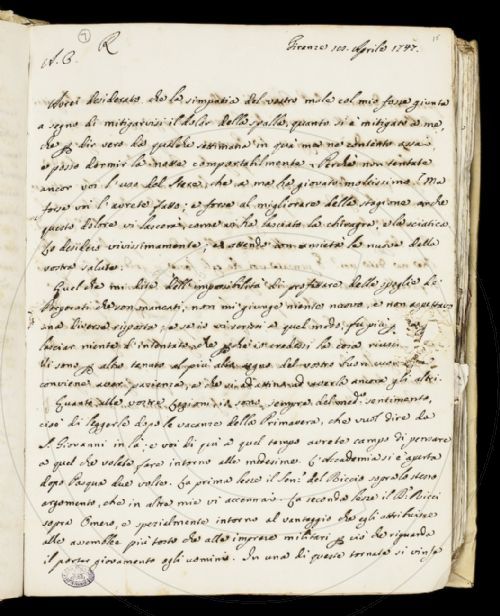 7
15
R
Firenze 10. Aprile 1747.
A. C.
Avrei desiderato che la simpatia del vostro male col mio fosse giunta
a segno di mitigarvisi il dolor della spalla, quanto si è mitigato a me,
che p dir vero da qualche settimana in qua me ne contento assai
e posso dormir la notte comportabilmente. Perchè non tentate
ancor voi l'uso del che a me ha giovato moltissimo? Ma
forse voi l'avrete fatto; e forse al migliorare della stagione anche
questo dolore vi lascerà, come vi ha lasciato la chiragra, e la sciatica
Lo desidero vivissimamente; ed attendo con ansietà la nuova della
vostra salute.
Quel che mi dite dell'impossibilità di profittare delle spoglie de'
Porporati che son mancati, non mi giunge niente nuovo, e non aspettavo
una diversa risposta; e se io vi scrissi a quel modo, fu più p
lasciar niente d'intentato, che p che io credessi la cosa riusci-
conviene aver pazienza, e che si adattino ad averla ancora gli altri.
Quanto alle vostre Lezioni io sono sempre del med.o sentimento,
cioè di leggerle dopo le vacanze della Primavera, che vuol dire da
S. Giovanni in là: e voi di più a quel tempo avrete campo di pensare
a quel che volete fare intorno alle medesime. L'Accademia si è aperta
dopo Pasqua due volte. La prima lesse il Sen.e del Riccio sopra lo stesso
argomento, che in altra mia vi accennai. La seconda lesse il Ricci
sopra Omero, e spezialmente intorno al vantaggio che egli attribuisce
alle assemblee più tosto che alle imprese militari p ciò che riguarda
il porger giovamento agli uomini. In una di queste tornate si vinse